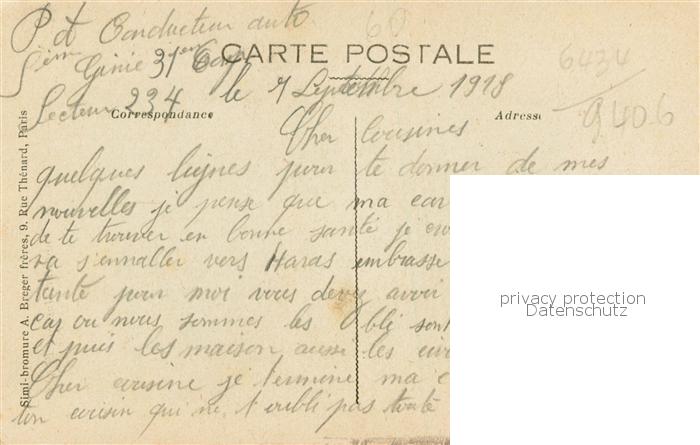 P d Conducteur auto
60
5ième Génie 31 Comp
CARTE POSTALE
6434
Secteur 234
le 7 Septembre 1918
9406
Correspondance
Adresse
Cher Cousines
quelques lignes pour te donner de mes
nouvelles je pense que ma car
de te trouver en bonne santé je
va s'enaller vers Haras embrasse
tante pour moi vous devez avoir
car ou nous sommes les blé sont
et puis les maison aussi les
Cher cousine je termine ma c
ton cousin qui ne t'oubli pas
Simi-bromure A. Breger frères, 9, Rue Thénard, Paris
privacy protection
Datenschutz